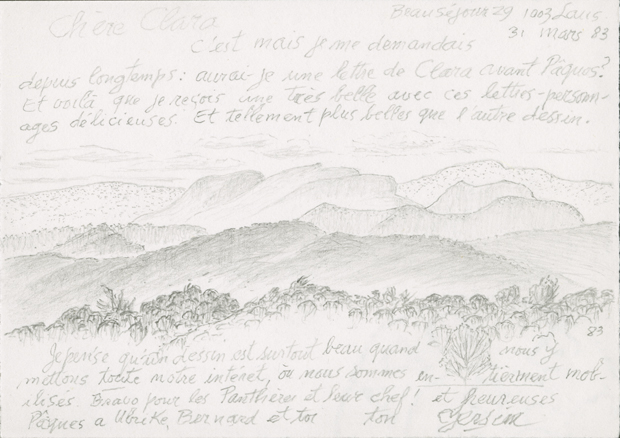 Chère Clara
Beauséjour 29 1003 Laus
31 Mars 83
c'est mais je me demandais
depuis longtemps: aurai-je une lettre de Clara avant Pâques?
Et voilà que je reçois une très belle avec ces lettres-personn-
ages délicieuses. Et tellement plus belles que l'autre dessin.
83
Je pense qu'un dessin est surtout beau quand nous y
mettons toute notre intérêt, où nous sommes en- tièrment mob-
ilisés. Bravo pour les Panthères et leur chef! et heureuses
Pâques a Ulrike, Bernard et toi ton